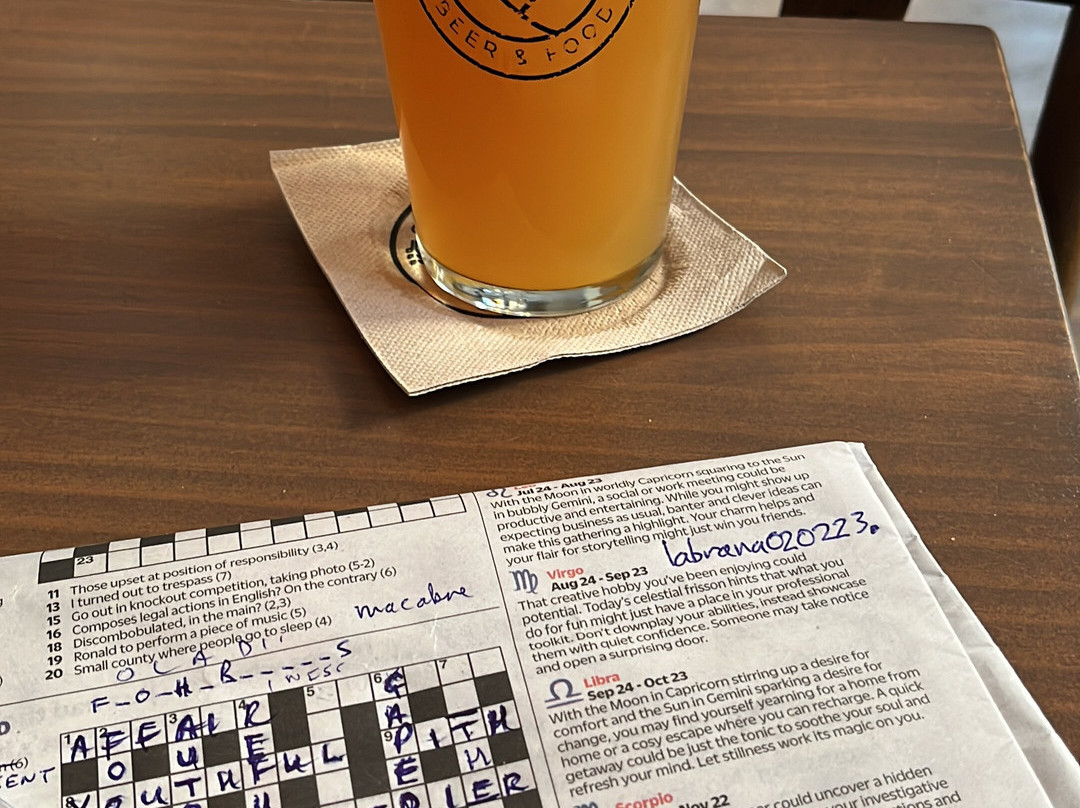 BEER & FOOD
23
11 Those upset at position of responsibility (3,4)
13 I turned out to trespass (7)
15 Go out in knockout competition, taking photo (5-2)
16 Composes legal actions in English? On the contrary (6)
18 Discombobulated, in the main? (2,3)
19 Ronald to perform a piece of music (5)
20 Small county where people go to sleep (4)
macabre
F-O-H-B-----S
1 2 3 4 5 6 7
AFFAIR
9 PITH
YOUTHFUL
(6)
ENT
Jul 24 - Aug 23
With the Moon in worldly Capricorn squaring to the Sun
in bubbly Gemini, a social or work meeting could be
productive and entertaining. While you might show up
expecting business as usual, banter and clever ideas can
make this gathering a highlight. Your charm helps and
your flair for storytelling might just win you friends.
labrana020223.
Virgo
Aug 24 - Sep 23
That creative hobby you've been enjoying could
potential. Today's celestial frisson hints that what you
do for fun might just have a place in your professional
toolkit. Don't downplay your abilities, instead showcase
them with quiet confidence. Someone may take notice
and open a surprising door.
Libra
Sep 24 - Oct 23
With the Moon in Capricorn stirring up a desire for
comfort and the Sun in Gemini sparking a desire for
change, you may find yourself yearning for a home from
home or a cosy escape where you can recharge. A quick
getaway could be just the tonic to soothe your soul and
refresh your mind. Let stillness work its magic on you.
Scorpio
Nov 22
could uncover a hidden
your investigative